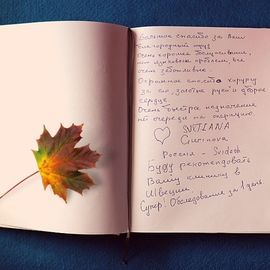 Большое спасибо за Ваш
благородный труд!
Очень хорошее обслуживание,
нет языковых проблем, все
очень заботливые.
Огромное спасибо хирургу
за его золотые руки и доброе
сердце.
Очень быстрое назначение
нет очереди на операцию
SVETLANA
Россия -
Буду рекомендовать
Вашу клинику в
Швеции.
Супер! Обследование за 1 день